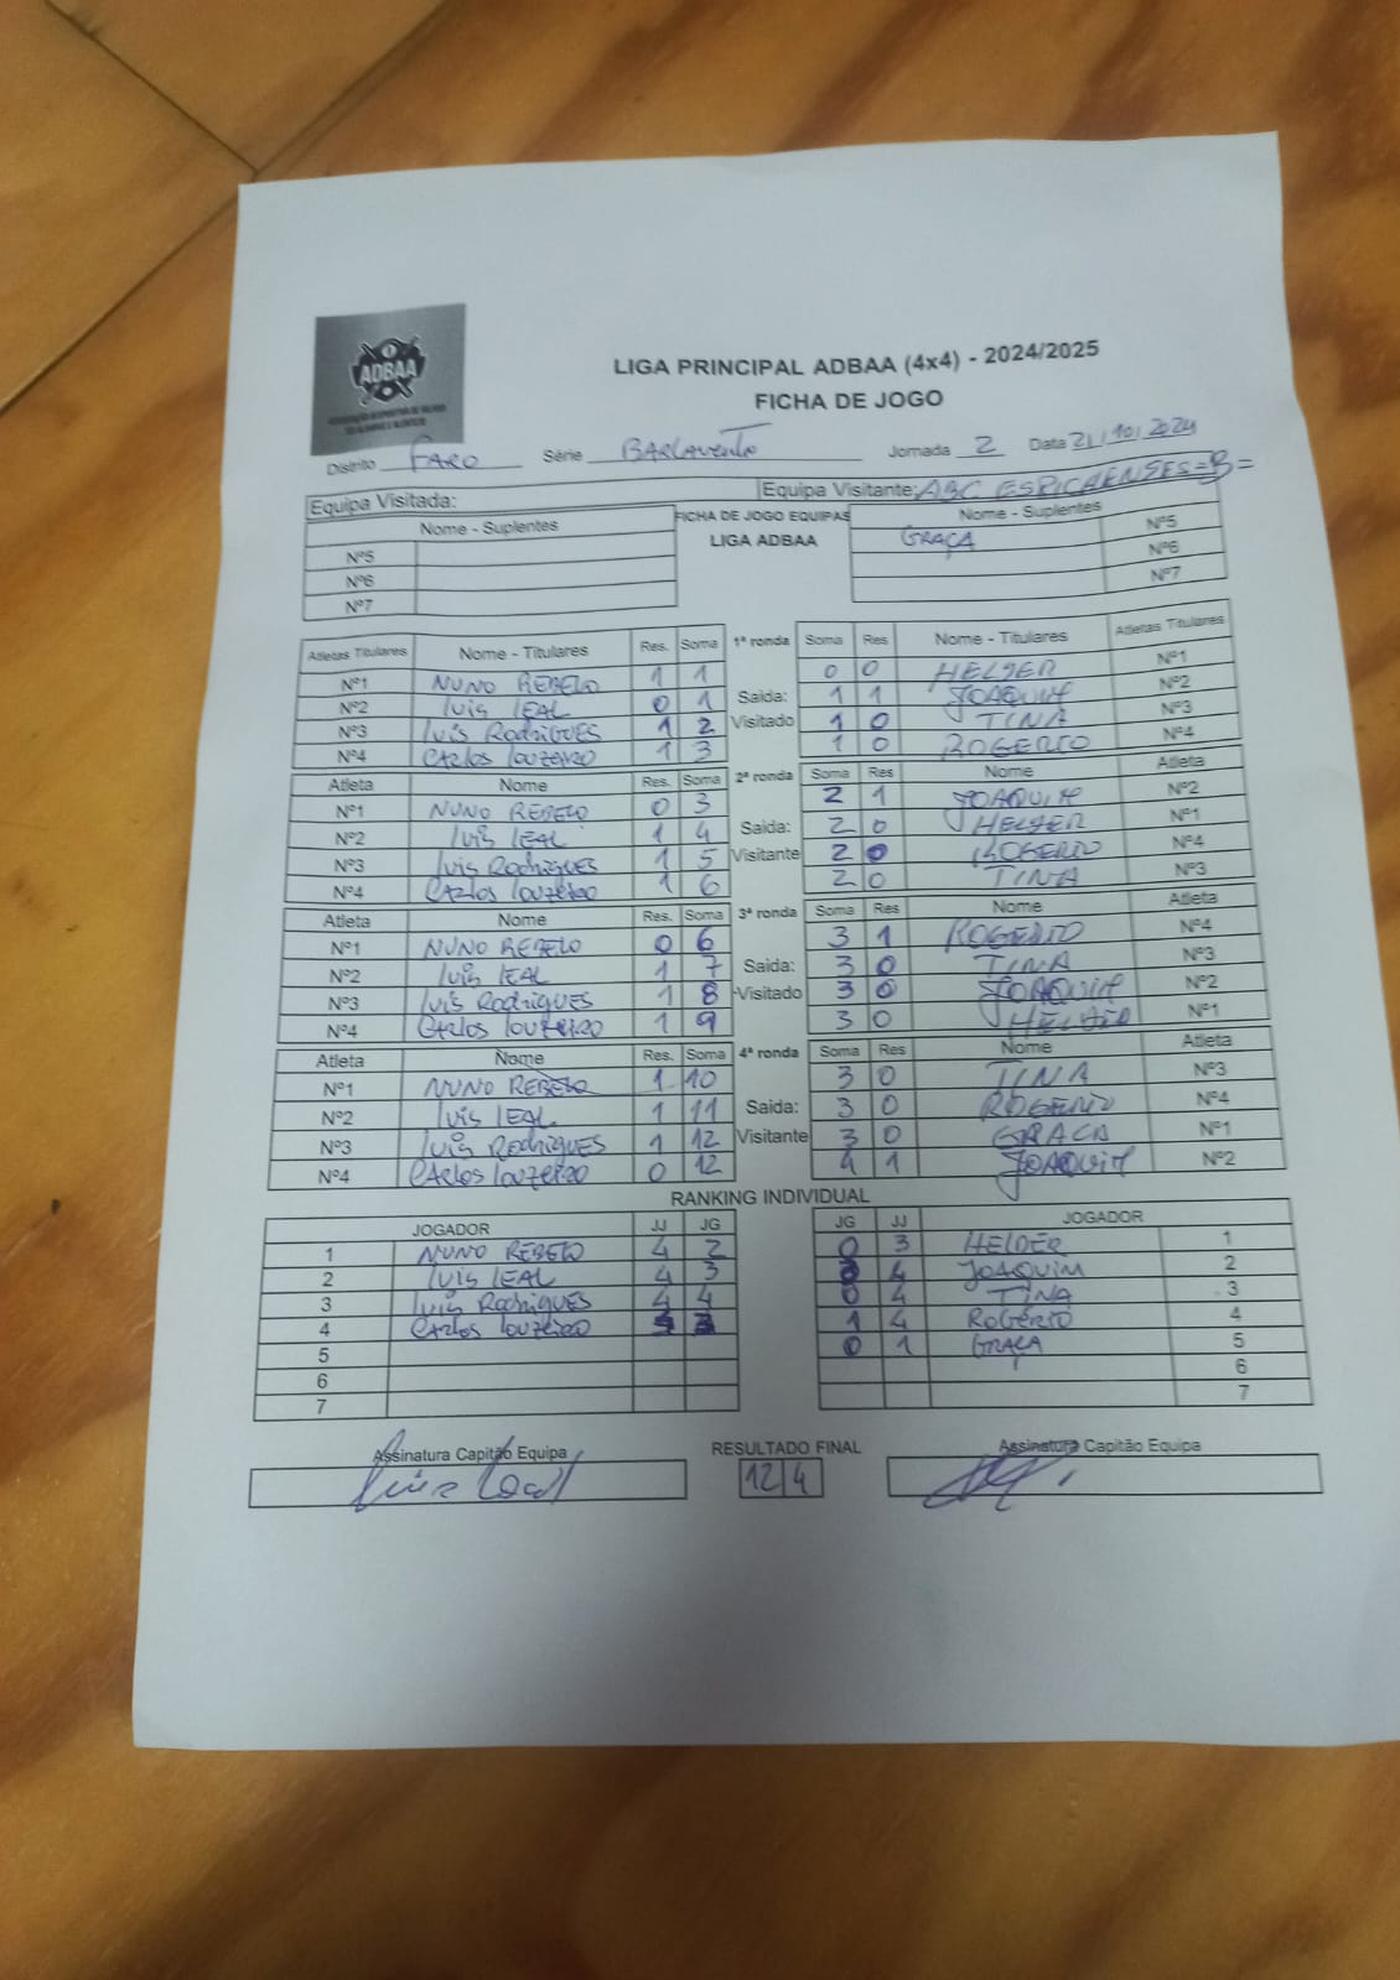 ADBAA
LIGA PRINCIPAL ADBAA (4x4) - 2024/2025
FICHA DE JOGO
Distrito FARO Série BARLAVENTO Jornada 2 Data 21/10/2024
Equipa Visitada: Equipa Visitante: ABC ESPICHENSES =B=
Nome - Suplentes FICHA DE JOGO EQUIPAS Nome - Suplentes
Nº5 LIGA ADBAA GRAÇA Nº5
Nº6 Nº6
Nº7 Nº7
Atletas Titulares Nome - Titulares Res. Soma 1ª ronda Soma Res Nome - Titulares Atletas Titulares
Nº1 NUNO REBELO 1 1 0 0 HELDER Nº1
Nº2 luís lEAL 0 1 Saida: 1 1 JOAQUIM Nº2
Nº3 luís RodRiGUES 1 2 Visitado 1 0 TINA Nº3
Nº4 CARlos louzeiRO 1 3 1 0 ROGERIO Nº4
Atleta Nome Res. Soma 2ª ronda Soma Res Nome Atleta
Nº1 NUNO REBELO 0 3 2 1 JOAQUIM Nº2
Nº2 luís lEAL 1 4 Saida: 2 0 HELDER Nº1
Nº3 luis RodRigues 1 5 Visitante 2 0 ROGERIO Nº4
Nº4 CARlos louzeiRO 1 6 2 0 TINA Nº3
Atleta Nome Res. Soma 3ª ronda Soma Res Nome Atleta
Nº1 NUNO REBELO 0 6 3 1 ROGERIO Nº4
Nº2 luís lEAL 1 7 Saida: 3 0 TINA Nº3
Nº3 luís RodRigues 1 8 Visitado 3 0 JOAQUIM Nº2
Nº4 CARlos louzeiRO 1 9 3 0 HELDER Nº1
Atleta Nome Res. Soma 4ª ronda Soma Res Nome Atleta
Nº1 NUNO REBELO 1 10 3 0 TINA Nº3
Nº2 luís lEAL 1 11 Saida: 3 0 ROGERIO Nº4
Nº3 luís RodRigues 1 12 Visitante 3 0 GRACA Nº1
Nº4 CARlos louzeiRO 0 12 4 1 JOAQUIM Nº2
RANKING INDIVIDUAL
JOGADOR JJ JG JG JJ JOGADOR
1 NUNO REBELO 4 2 0 3 HELDER 1
2 luis lEAL 4 3 3 4 JOAQUIM 2
3 luis RodRigues 4 4 0 4 TINA 3
4 CARlos louzeiRO 3 1 4 ROGÉRIO 4
5 0 1 GRAÇA 5
6 6
7 7
Assinatura Capitão Equipa RESULTADO FINAL Assinatura Capitão Equipa
12 4